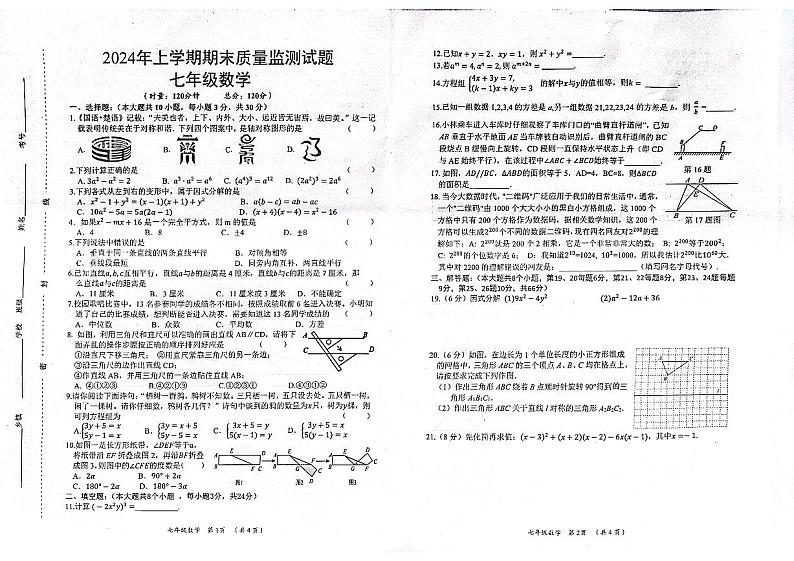 2024年上学期期末质量监测试题
七年级数学
（时量：120分钟 总分：120分）
一、选择题：（本大题共 10 小题，每小题 3 分，共 30 分）
1.《国语•楚语》记载：“夫美也者，上下、内外、大小、远近皆无害焉，故曰美。”这一记
载表明传统美在于对称和谐，下列四个图案中，是轴对称图形的是（ ）
A. B. C. D.
2.下列计算正确的是（ ）
A. 3a²－2a²＝2 B. a³·a²＝a⁶ C. (a⁴)³＝a¹² D. (2a²)³＝2a⁶
3.下列各式从左到右的变形中，属于因式分解的是（ ）
A. x²－1＋y²＝(x－1)(x＋1)＋y² B. a(b－c)＝ab－ac
C. 10a²－5a＝5a(2a－1) D. (x＋4)(x－4)＝x²－16
4. 如果x²－mx＋16 是一个完全平方式，则 m 的值是（ ）
A. 4 B. 8 C. ±4 D. ±8
5.下列说法中错误的是（ ）
A. 垂直于同一条直线的两条直线平行 B. 对顶角相等
C. 垂线段最短 D. 同旁内角互补，两直线平行
6.已知直线a,b,c互相平行，直线a与b的距离是 4 厘米，直线b与c的距离是 7 厘米，那
么直线a与c的距离是（ ）
A. 11 厘米 B. 3 厘米 C. 3 厘米或 11 厘米 D. 不能确定
7.校园歌唱比赛中，13 名参赛同学的成绩各不相同，按照成绩取前 6 名进入决赛，小明知
道了自己的比赛成绩，想判断能否进入决赛，需要知道这 13 名同学成绩的（ ）
A. 中位数 B. 众数 C. 平均数 D. 方差
8. 如图，利用三角尺和直尺可以准确的画出直线 AB∥CD，请将下
面弄乱的操作步骤按正确的顺序排列好应是（ ）
①沿直尺下移三角尺； ②用直尺紧靠三角尺的另一条边；
③沿三角尺的边作出直线 CD；
④作直线 AB，并用三角尺的一条边贴住直线 AB；
A. ④①②③ B.④②①③ C.①②③④ D.④③①②
9.请你阅读下面诗句：“栖树一群鸦，鸦树不知数，三只栖一树，五只没去处，五只栖一树，
闲了一棵树，请你仔细数，鸦树各几何？”诗句中谈到的鸦的数量为x只，树为y棵，则
可列方程组为（ ）
A.{3y＋5＝x 5y－1＝x B.{3y＝x＋5 5y－5＝x C.{3x＋5＝y 5(x－1)＝y D.{3y＋5＝x 5(y－1)＝x
10.如图一是长方形纸带，∠DEF等于α，
将纸带沿 EF 折叠成图 2，再沿BF折叠
成图 3，则图中的∠CFE的度数是（ ）
A. 2α B. 90°＋2α
C. 180°－2α D. 180°－3α
图1 图2 图3
二、填空题：（本大题共8个小题，每小题3分，共24分）
11.计算(－2x²y)³＝
七年级数学 第 1页 （共 4 页）
12.已知x＋y＝2，xy＝1，则 x²＋y²＝
13.若aᵐ＝4,aⁿ＝2, 则 aᵐ⁺²ⁿ＝
14.方程组 {4x＋3y＝7, (k－1)x＋ky＝3 的解中x与y的值相等，则k＝
15.已知一组数据 1,2,3,4 的方差是 a,另一组数据 21,22,23,24 的方差是 b，则 a/b＝
16.小林乘车进入车库时仔细观察了车库门口的“曲臂直杆道闸”，已知
AB 垂直于水平地面 AE 当车牌被自动识别后，曲臂直杆道闸的 BC
段绕点 B 缓慢向上旋转，CD 段则一直保持水平状态上升（即 CD
与 AE 始终平行），在该过程中∠ABC＋∠BCD始终等于
第 16题
17. 如图，AD//BC，△ABD的面积等于 5，AD=4，BC=8，则△DBC
的面积是
第 17题图
18. 当今大数据时代，“二维码”广泛应用于我们的日常生活中，通常，
一个“二维码”由 1000 个大大小小的黑白小方格组成，这 1000 个
方格中只有 200 个方格作为数据码，据相关数学知识，这 200 个
方格可以生成2²⁰⁰个不同的数据二维码，现有四名网友对2²⁰⁰的理
解如下：A: 2²⁰⁰就是 200 个 2 相乘，它是一个非常非常大的数； B: 2²⁰⁰等于200²；
C: 2²⁰⁰的个位数字是 6； D: 我知道2¹⁰=1024, 10³=1000，所以我估计2²⁰⁰比10⁶⁰大，
其中对 2200 的理解错误的网友是： （填写网名字母代号）
三、解答题：（本大题共8个小题，第19、20每题6分，第21、22每题8分，第23、24题每题
9分，第25、26题10分，共66分）
19.（6分）因式分解 (1)9x²－4y² (2)a²－12a＋36
20.（6 分）如图，在边长为 1 个单位长度的小正方形组成
的网格中，三角形 ABC 的三个顶点 A、B、C 均在格点上，
请按要求完成下列作图。
（1）作出三角形 ABC 绕着 B 点顺时针旋转 90°得到的三
角形 A₁B₁C₁.
（2）作出三角形 ABC 关于直线 l 对称的三角形 A₂B₂C₂.
21.（8 分）先化简再求值：(x－3)²＋(x＋2)(x－2)－6x(x－1)，其中x＝－1.
七年级数学 第 2页 （共 4 页）
考号
姓名
班级
学校
乡镇
线
封
密